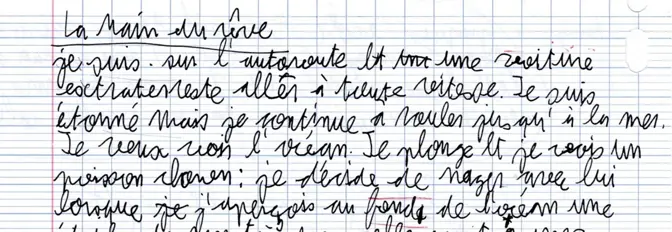 La Main du rêve
je suis sur l'autoroute et une voiture
extraterreste allér à toute vitesse. Je suis
étonné mais je continue a rouler jusqu'à la mer.
Je veux voir l'océan. Je plonge et je vois un
poisson clown: je décide de nager avec lui
lorsque j'aperçois au fond de l'océan une